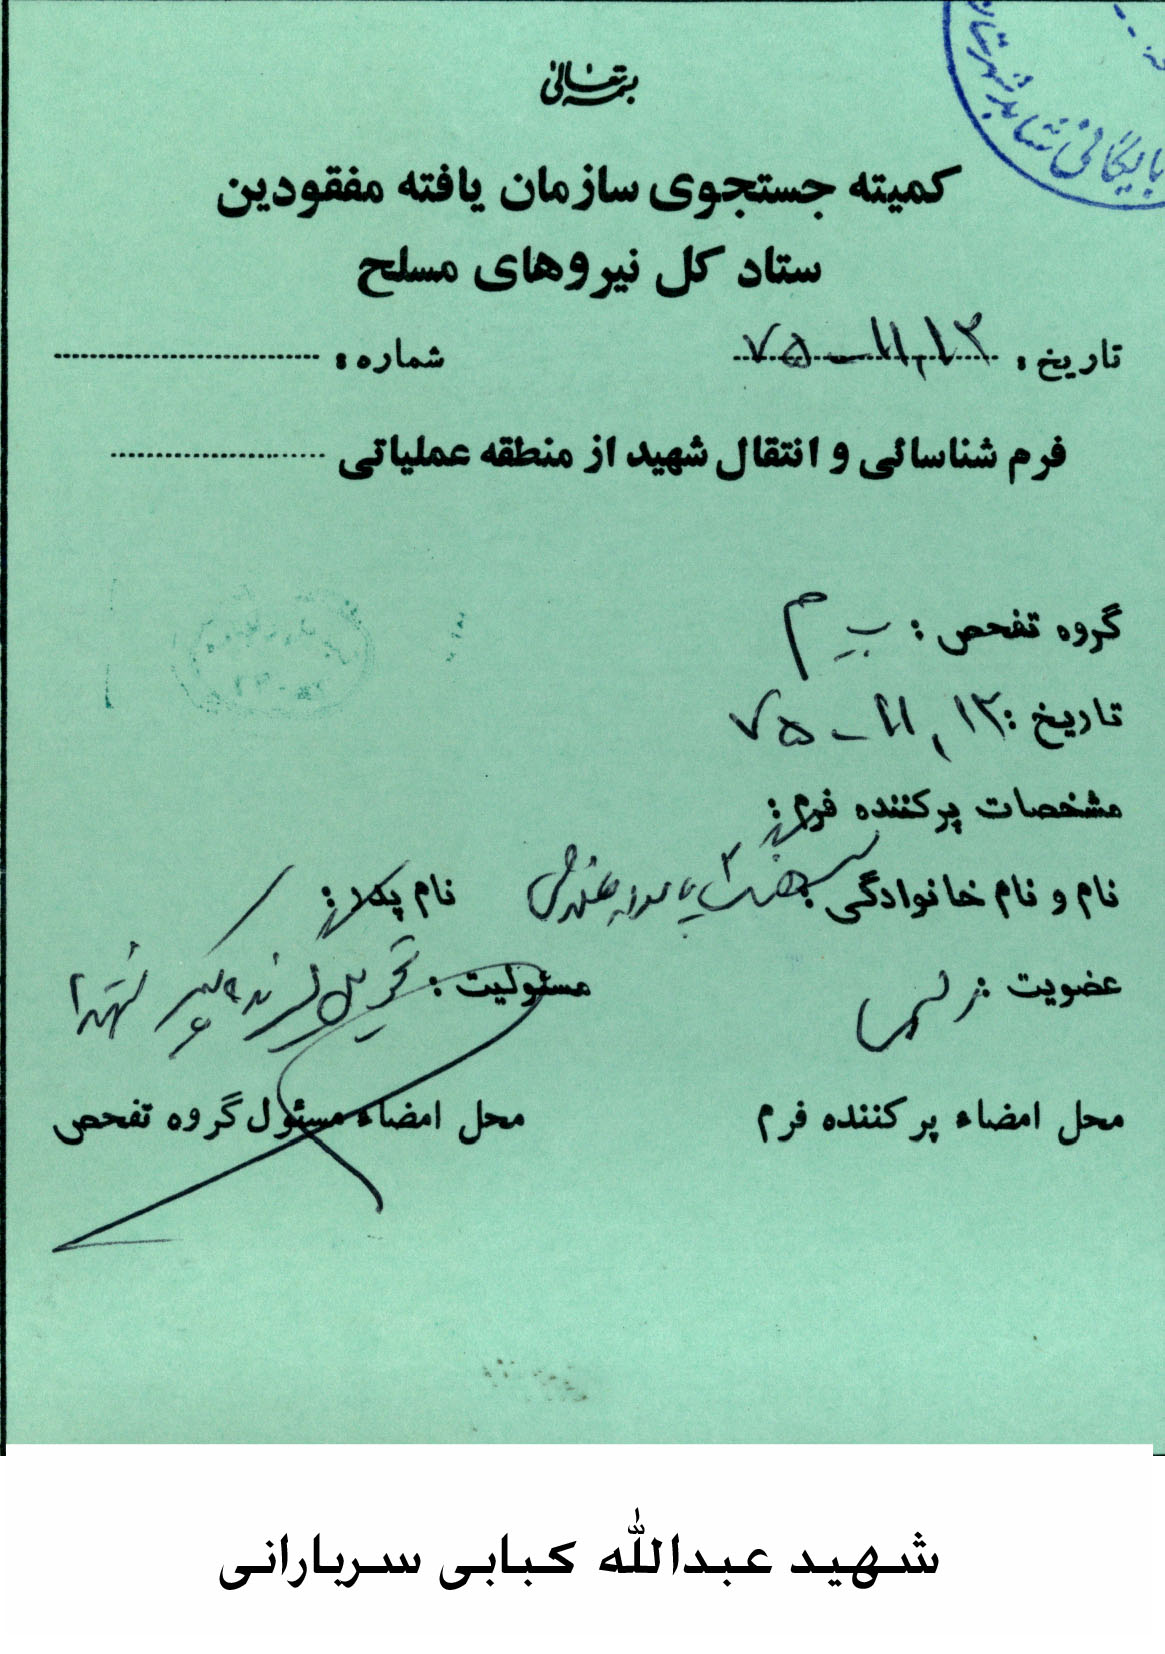 بسمه تعالی
بایگانی شاهد شهرستان
کمیته جستجوی سازمان یافته مفقودین
ستاد کل نیروهای مسلح
تاریخ : ۷۵-۱۱،۱۳ شماره :
فرم شناسائی و انتقال شهید از منطقه عملیاتی
گروه تفحص :
تاریخ : ۱۳، ۱۱-۷۵
مشخصات پرکننده فرم :
نام و نام خانوادگی : نام پدر :
عضویت : مسئولیت : تحویل گیرنده پیکر شهدا
محل امضاء پرکننده فرم محل امضاء مسئول گروه تفحص
شهید عبدالله کبابی سربارانی